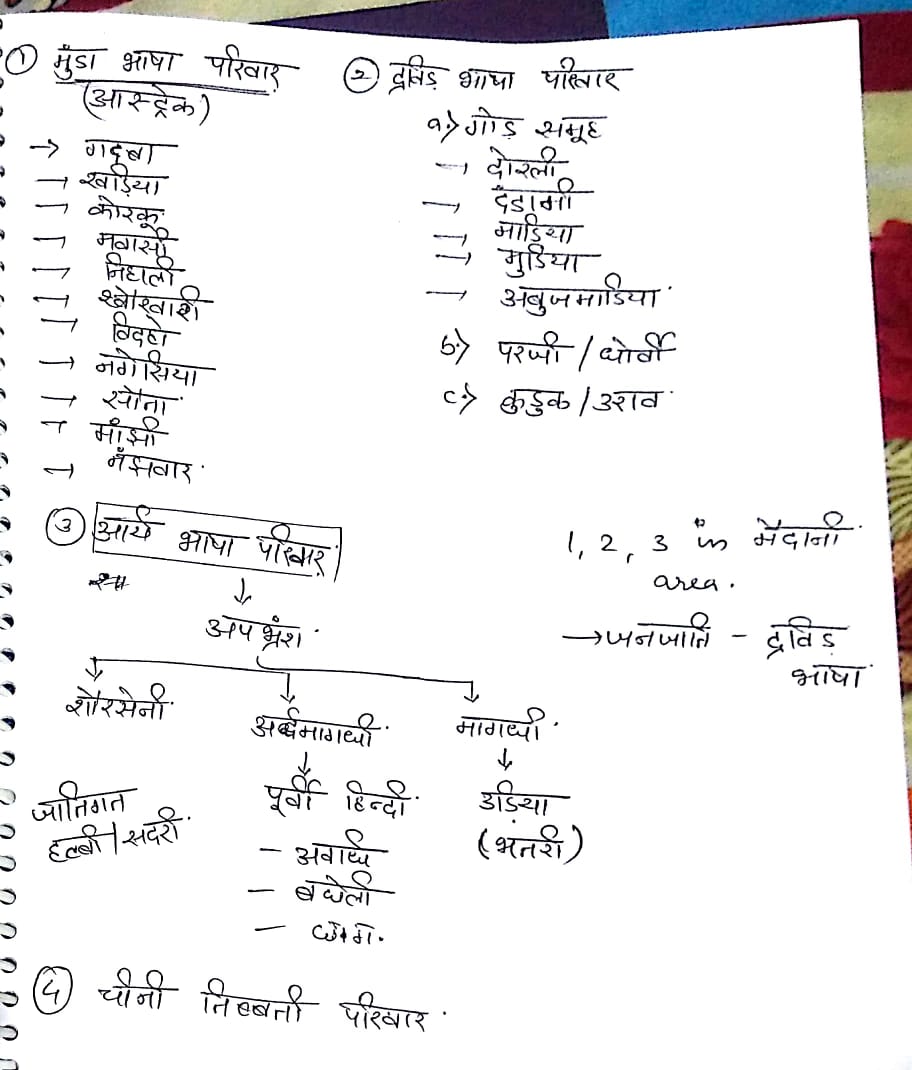 ① मुंडा भाषा परिवार
(आस्ट्रेक)
→ गदबा
→ खड़िया
→ कोरकू
→ मवासी
→ निहाली
→ खैरवारी
→ बिरहो
→ नगेसिया
→ सौता
→ मांझी
→ मँझवार
② द्रविड़ भाषा परिवार
a.> गोंड समूह
→ दोरली
→ दंडामी
→ माडिया
→ मुडिया
→ अबुजमाडिया
b.> परजी / धोर्वी
c.> कुडुक / उराव
③ आर्य भाषा परिवार
↓
अपभ्रंश
शौरसेनी
अर्द्धमागधी
मागधी
↓
पूर्वी हिन्दी
- अवधि
- बघेली
- छ०ग.
↓
उड़िया
(भतरी)
जातिगत
हल्बी / सदरी
1, 2, 3 in मैदानी
area.
→ जनजाति - द्रविड़
भाषा
④ चीनी तिब्बती परिवार